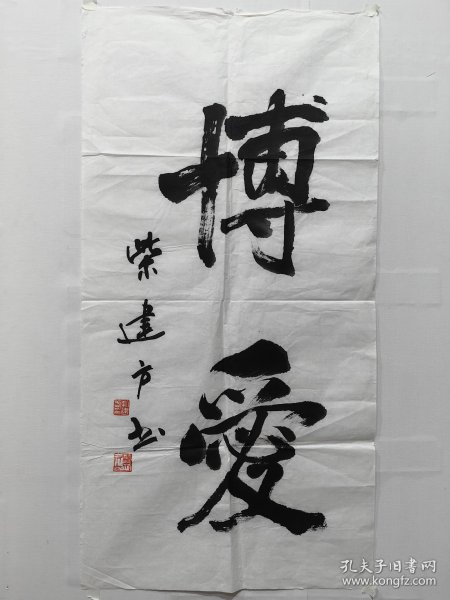 博愛
柴建方书
孔夫子旧书网
www.kongfz.com